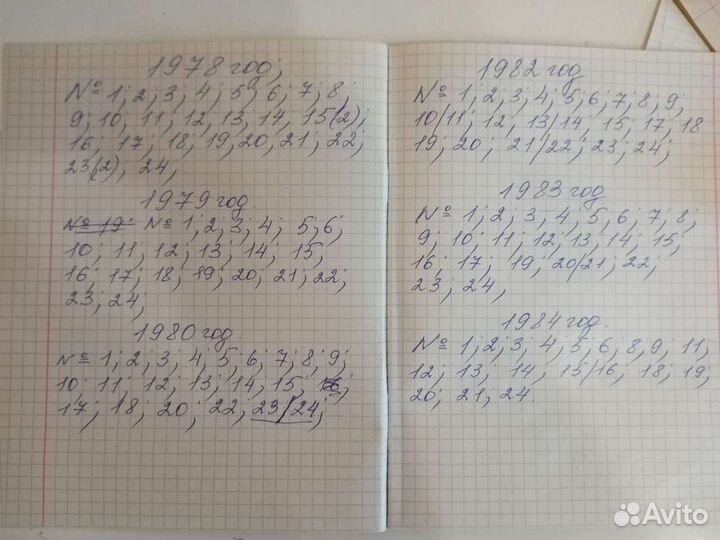 1978 год;
№ 1; 2; 3; 4; 5; 6; 7; 8;
9; 10; 11; 12, 13, 14, 15(2);
16; 17; 18; 19, 20, 21; 22;
23(2), 24;
1979 год.
№ 19; № 1; 2; 3; 4; 5; 6;
10; 11; 12; 13; 14; 15;
16; 17; 18; 19; 20; 21; 22;
23; 24;
1980 год.
№ 1; 2; 3; 4; 5; 6; 7; 8; 9;
10; 11; 12, 13; 14; 15; 16;
17; 18; 20; 22, 23/24;
1982 год
№ 1; 2; 3; 4; 5; 6; 7; 8, 9;
10/11; 12, 13/14, 15; 17, 18
19; 20; 21/22; 23; 24;
1983 год
№ 1; 2; 3, 4; 5; 6; 7, 8;
9; 10; 11; 12; 13; 14; 15;
16; 17; 19; 20/21; 22;
23; 24,
1984 год.
№ 1; 2; 3; 4; 5; 6; 8, 9; 11;
12; 13; 14; 15/16; 18; 19;
20; 21; 24.
Avito